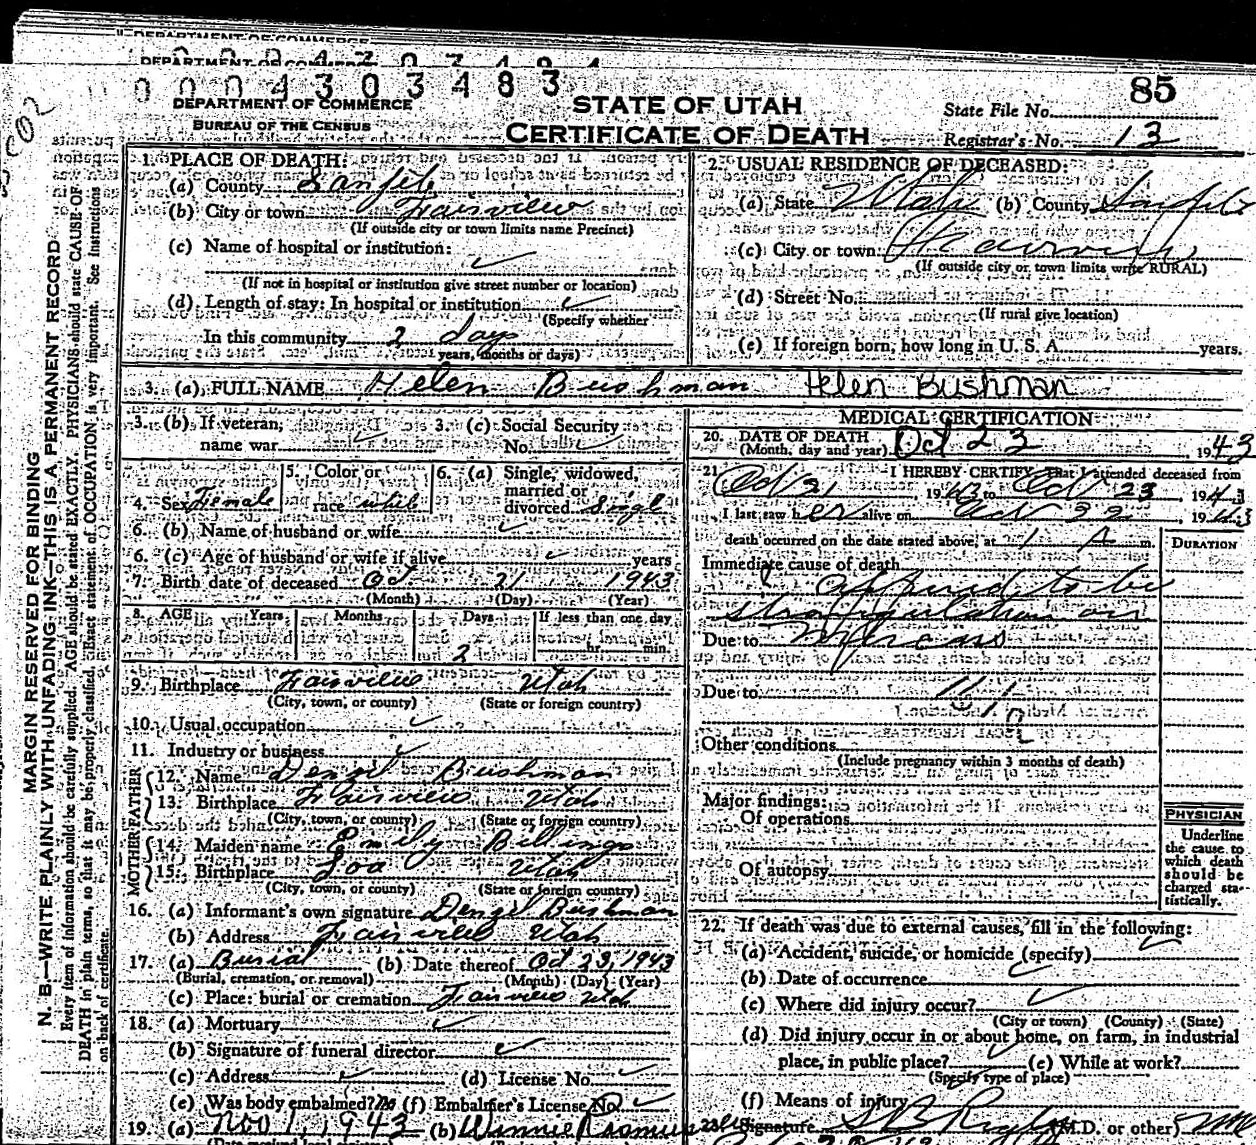 DEPARTMENT OF COMMERCE
0 0 0 4 3 0 3 4 8 3
DEPARTMENT OF COMMERCE
BUREAU OF THE CENSUS
STATE OF UTAH
CERTIFICATE OF DEATH
85
State File No.
Registrar's No. 13
MARGIN RESERVED FOR BINDING
N. B.—WRITE PLAINLY WITH UNFADING INK—THIS IS A PERMANENT RECORD
Every item of information should be carefully supplied. AGE should be stated EXACTLY. PHYSICIANS should state CAUSE OF
DEATH in plain terms, so that it may be properly classified. Exact statement of OCCUPATION is very important. See instructions
on back of certificate.
1. PLACE OF DEATH:
(a) County Sanpete
(b) City or town Fairview
(If outside city or town limits name Precinct)
(c) Name of hospital or institution:
(If not in hospital or institution give street number or location)
(d) Length of stay: In hospital or institution
(Specify whether
In this community 2 days
years, months or days)
2. USUAL RESIDENCE OF DECEASED:
(a) State Utah (b) County Sanpete
(c) City or town Fairview
(If outside city or town limits write RURAL)
(d) Street No.
(If rural give location)
(e) If foreign born, how long in U. S. A. years.
3. (a) FULL NAME Helen Bushman Helen Bushman
3. (b) If veteran, name war 3. (c) Social Security No.
4. Sex Female 5. Color or race white 6. (a) Single, widowed, married or divorced Singl
6. (b) Name of husband or wife
6. (c) Age of husband or wife if alive years
7. Birth date of deceased Oct 21 1943
(Month) (Day) (Year)
8. AGE Years Months Days If less than one day
2 hr. min.
9. Birthplace Fairview Utah
(City, town, or county) (State or foreign country)
10. Usual occupation
11. Industry or business
FATHER
12. Name Denzil Bushman
13. Birthplace Fairview Utah
(City, town, or county) (State or foreign country)
MOTHER
14. Maiden name Emily Billings
15. Birthplace Loa Utah
(City, town, or county) (State or foreign country)
16. (a) Informant's own signature Denzil Bushman
(b) Address Fairview Utah
17. (a) Burial (b) Date thereof Oct 23, 1943
(Burial, cremation, or removal) (Month) (Day) (Year)
(c) Place: burial or cremation Fairview Utah
18. (a) Mortuary
(b) Signature of funeral director
(c) Address (d) License No.
(e) Was body embalmed? No (f) Embalmer's License No.
19. (a) Nov 1, 1943 (b) Winnie
MEDICAL CERTIFICATION
20. DATE OF DEATH Oct 23 1943
(Month, day and year)
21. I HEREBY CERTIFY, That I attended deceased from
Oct 21 1943 to Oct 23 1943
I last saw her alive on Oct 22, 1943
death occurred on the date stated above, at 1 A m.
DURATION
Immediate cause of death
to be
Due to
Due to
Other conditions
(Include pregnancy within 3 months of death)
Major findings:
Of operations
Of autopsy
PHYSICIAN
Underline
the cause to
which death
should be
charged sta-
tistically.
22. If death was due to external causes, fill in the following:
(a) Accident, suicide, or homicide (specify)
(b) Date of occurrence
(c) Where did injury occur?
(City or town) (County) (State)
(d) Did injury occur in or about home, on farm, in industrial
place, in public place? (e) While at work?
(Specify type of place)
(f) Means of injury
23. Signature (M.D. or other)